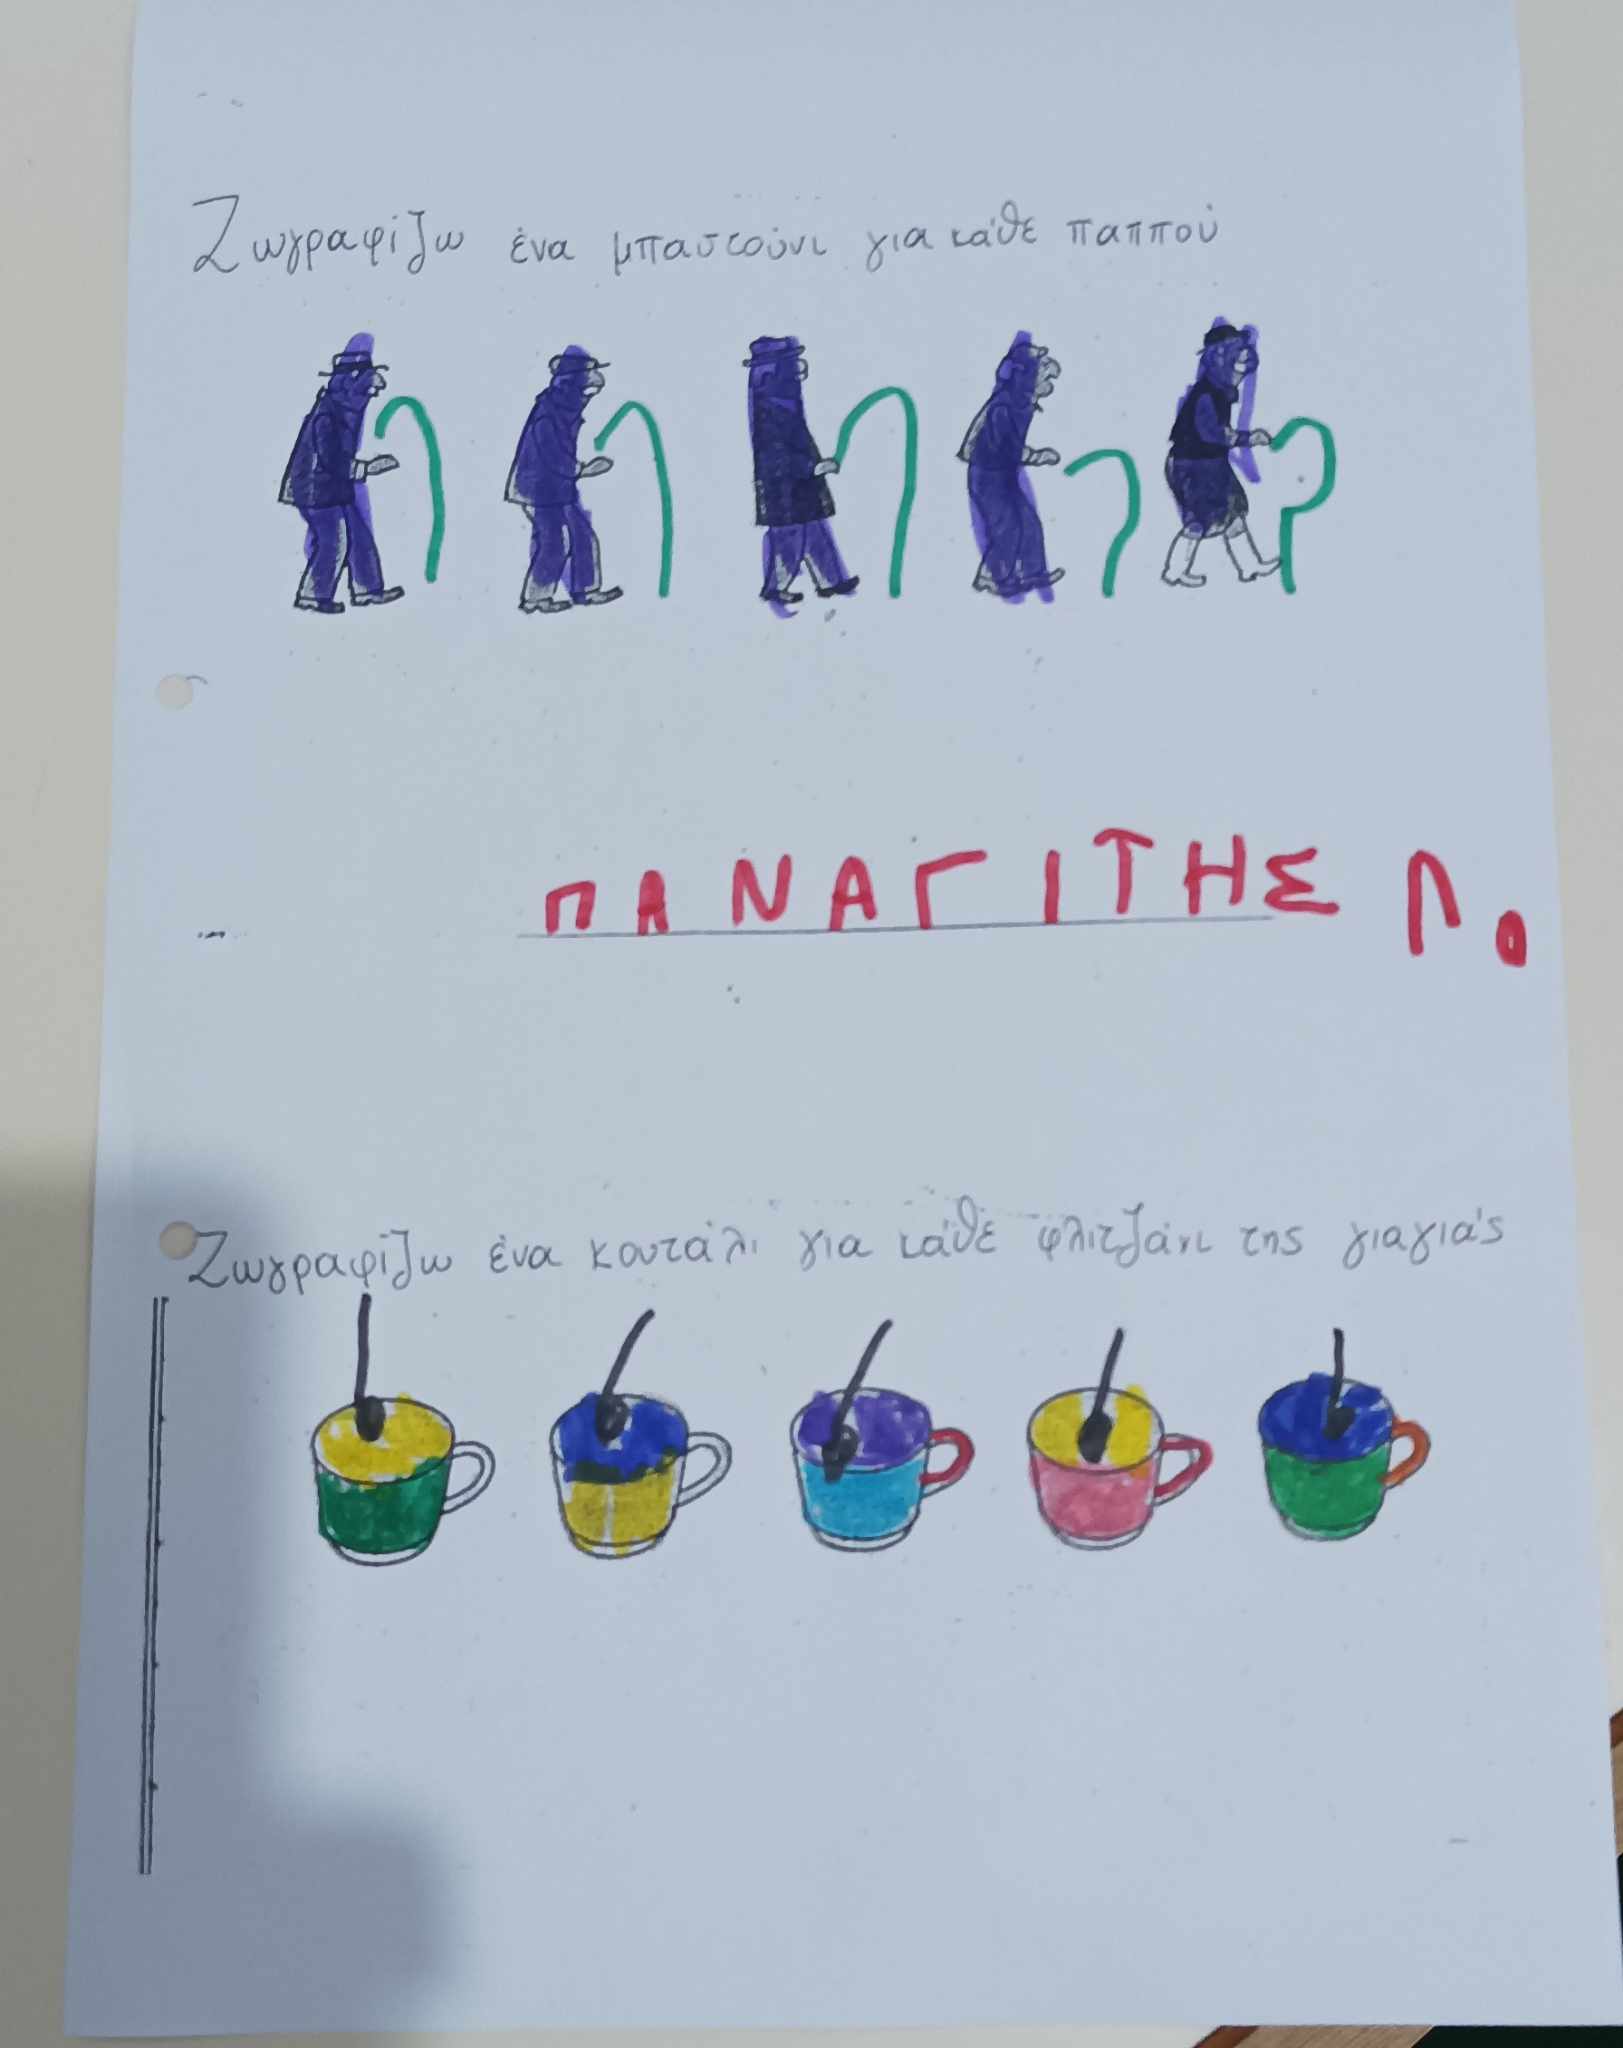 Ζωγραφίζω ένα μπαστούνι για κάθε παππού
ΠΑΝΑΓΙΤΗΣ Π.
Ζωγραφίζω ένα κουτάλι για κάθε φλιτζάνι της γιαγιάς